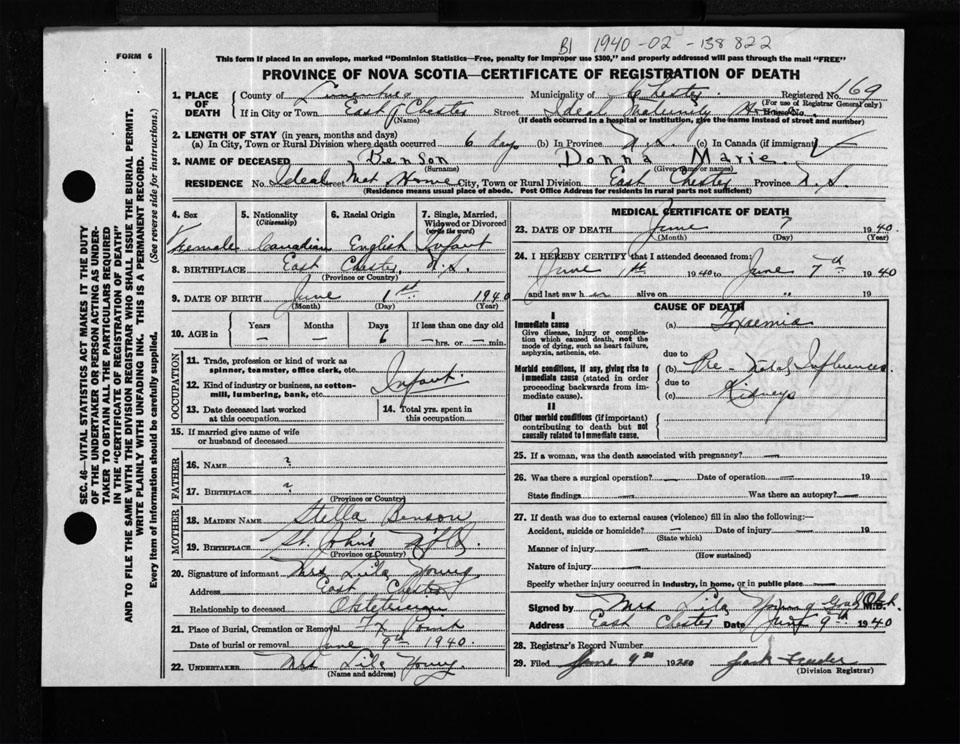 B1 1940-02-138822
FORM 6
This form if placed in an envelope, marked "Dominion Statistics—Free, penalty for improper use $300," and properly addressed will pass through the mail "FREE"
PROVINCE OF NOVA SCOTIA—CERTIFICATE OF REGISTRATION OF DEATH
SEC. 46—VITAL STATISTICS ACT MAKES IT THE DUTY
OF THE UNDERTAKER OR PERSON ACTING AS UNDER-
TAKER TO OBTAIN ALL THE PARTICULARS REQUIRED
IN THE "CERTIFICATE OF REGISTRATION OF DEATH"
AND TO FILE THE SAME WITH THE DIVISION REGISTRAR WHO SHALL ISSUE THE BURIAL PERMIT.
WRITE PLAINLY WITH UNFADING INK. THIS IS A PERMANENT RECORD.
Every item of information should be carefully supplied. (See reverse side for instructions.)
1. PLACE OF DEATH County of Lunenburg Municipality of Chester Registered No. 169
(Name) (For use of Registrar General only)
If in City or Town East Chester Street Ideal Maternity Home No.
(If death occurred in a hospital or institution, give the name instead of street and number)
2. LENGTH OF STAY (in years, months and days)
(a) In City, Town or Rural Division where death occurred 6 days (b) In Province N.S. (c) In Canada (if immigrant)
3. NAME OF DECEASED Benson Donna Marie
(Surname) (Given name or names)
RESIDENCE No. Ideal Street Mat Home City, Town or Rural Division East Chester Province N.S.
(Residence means usual place of abode. Post Office Address for residents in rural parts not sufficient)
4. Sex 5. Nationality (Citizenship) 6. Racial Origin 7. Single, Married, Widowed or Divorced (write the word)
Female Canadian English Infant
8. BIRTHPLACE East Chester, N.S.
(Province or Country)
9. DATE OF BIRTH June 1st 1940
(Month) (Day) (Year)
10. AGE in Years Months Days If less than one day old
— — 6 —hrs. or —min.
OCCUPATION
11. Trade, profession or kind of work as spinner, teamster, office clerk, etc.
Infant
12. Kind of industry or business, as cotton-mill, lumbering, bank, etc.
13. Date deceased last worked at this occupation 14. Total yrs. spent in this occupation
15. If married give name of wife or husband of deceased
FATHER
16. NAME ?
17. BIRTHPLACE ?
(Province or Country)
MOTHER
18. MAIDEN NAME Stella Benson
19. BIRTHPLACE St. John's Nfld.
(Province or Country)
20. Signature of informant Mrs Lila Young
Address East Chester
Relationship to deceased Obstetrician
21. Place of Burial, Cremation or Removal Fx Point
Date of burial or removal June 9th 1940.
22. UNDERTAKER Mrs Lila Young
(Name and address)
MEDICAL CERTIFICATE OF DEATH
23. DATE OF DEATH June 7 1940
(Month) (Day) (Year)
24. I HEREBY CERTIFY that I attended deceased from:
June 1st 1940 to June 7th 1940
and last saw h er alive on " " 19
CAUSE OF DEATH
I
Immediate cause
Give disease, injury or complication which caused death, not the mode of dying, such as heart failure, asphyxia, asthenia, etc.
(a) Toxaemia
due to
Morbid conditions, if any, giving rise to immediate cause (stated in order proceeding backwards from immediate cause).
(b) Pre-Natal Influences
due to
(c) Kidneys
II
Other morbid conditions (if important) contributing to death but not causally related to immediate cause.
25. If a woman, was the death associated with pregnancy?
26. Was there a surgical operation? — Date of operation — 19
State findings Was there an autopsy? —
27. If death was due to external causes (violence) fill in also the following:—
Accident, suicide or homicide? — Date of injury — 19
(State which)
Manner of injury —
(How sustained)
Nature of injury —
Specify whether injury occurred in industry, in home, or in public place —
Signed by Mrs Lila Young Grad Obst. M.D.
Address East Chester Date June 9th 1940
28. Registrar's Record Number
29. Filed June 9th 1940
(Division Registrar)